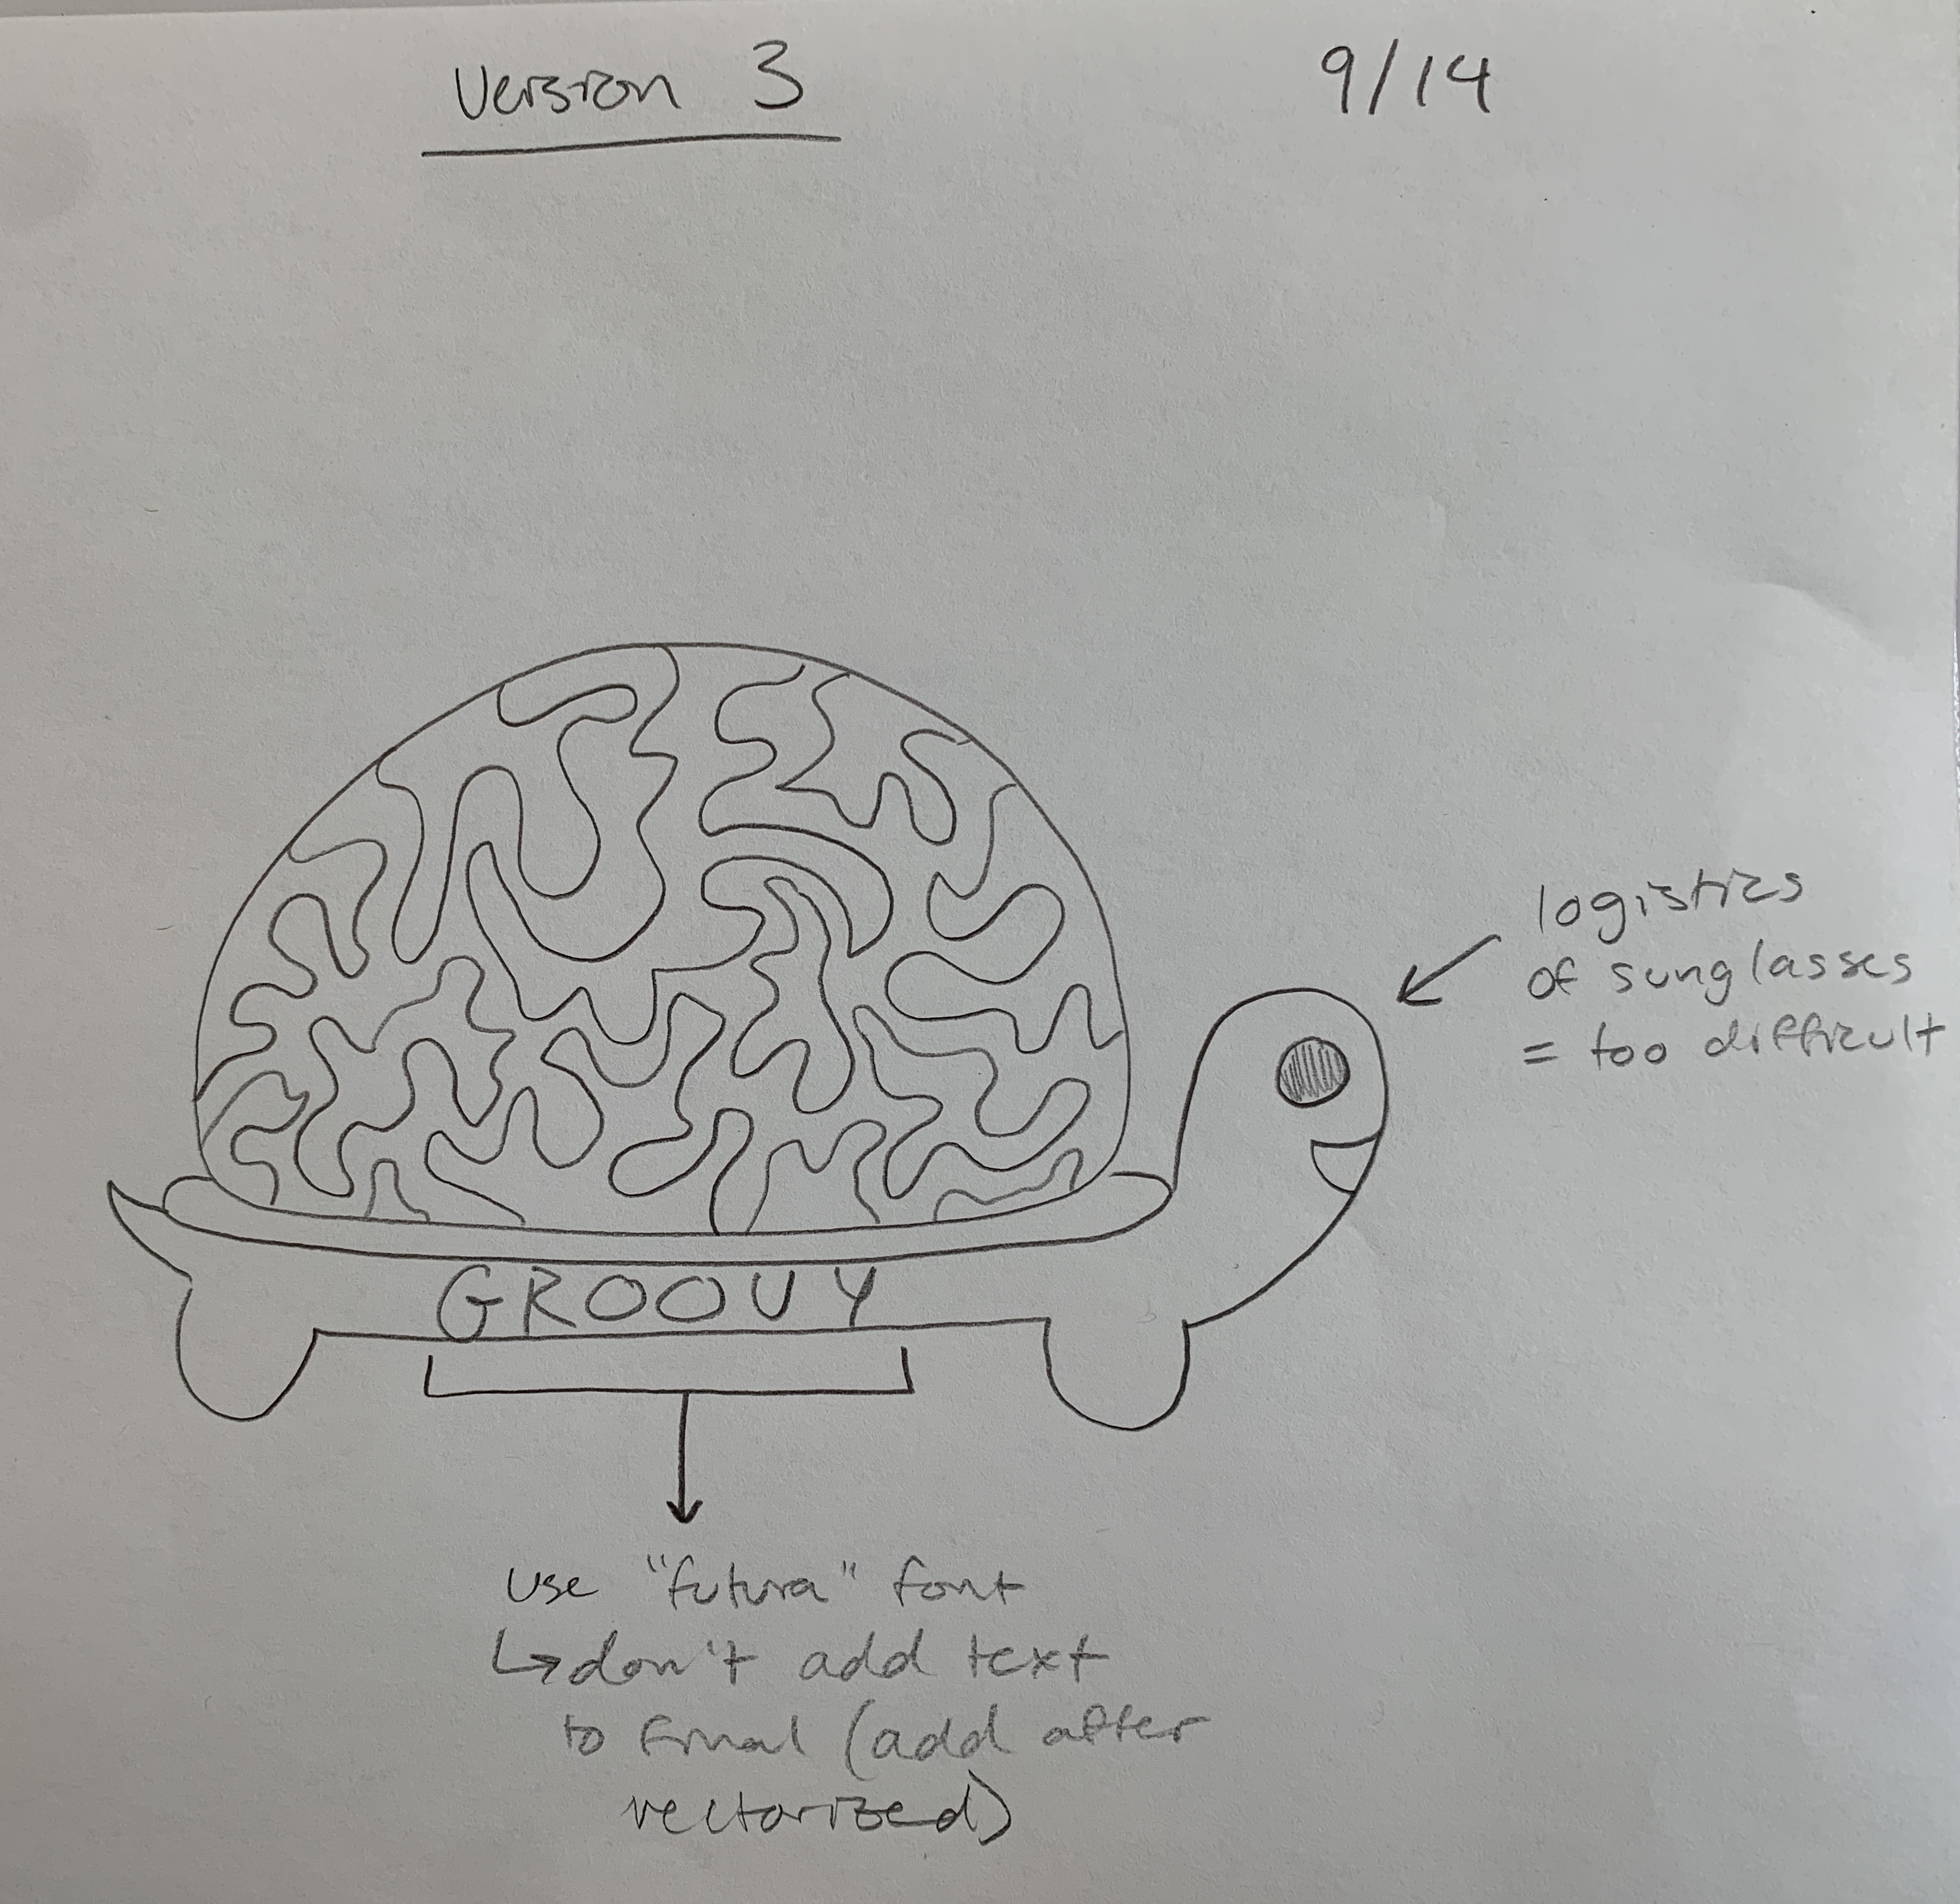 Version 3
9/14
logistics
of sunglasses
= too difficult
GROOVY
use "futura" font
↳ don't add text
to final (add after
vectorized)